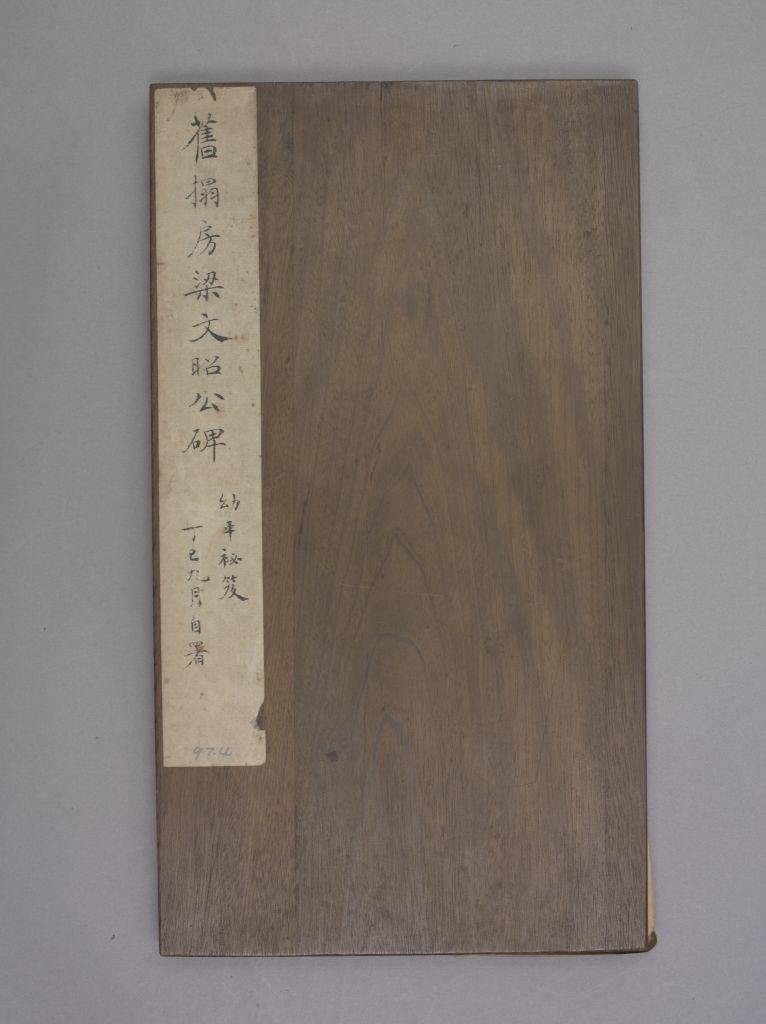 舊搨房梁文昭公碑
幼平祕笈
丁巳九月自署
974